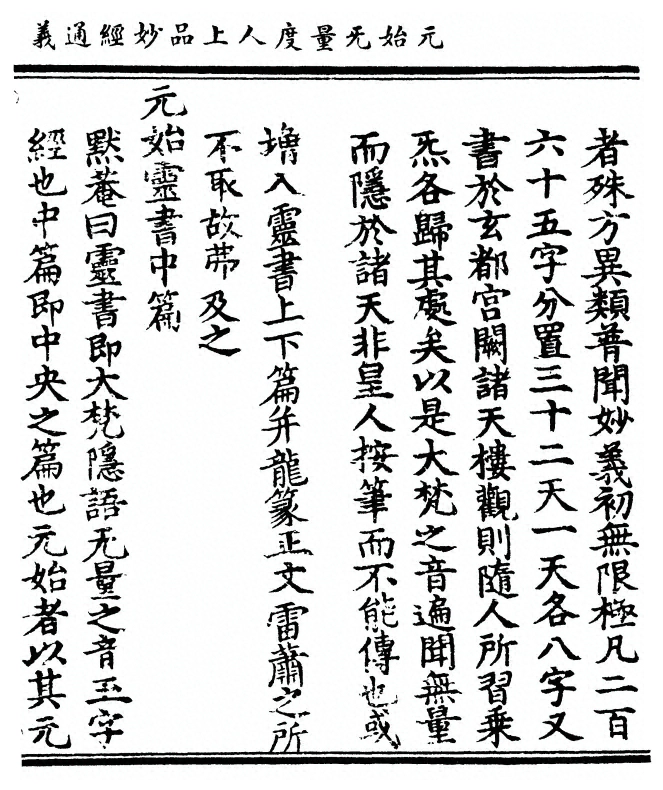 元始无量度人上品妙經通義
者殊方異類普聞妙義初無限極凡二百
六十五字分置三十二天一天各八字又
書於玄都宮闕諸天樓觀則隨人所習乘
炁各歸其處矣以是大梵之音遍聞無量
而隱於諸天非皇人按筆而不能傳也或
增入靈書上下篇并龍篆正文雷蕭之所
不取故弗及之
元始靈書中篇
默菴曰靈書即大梵隱語无量之音玉字
經也中篇即中央之篇也元始者以其元